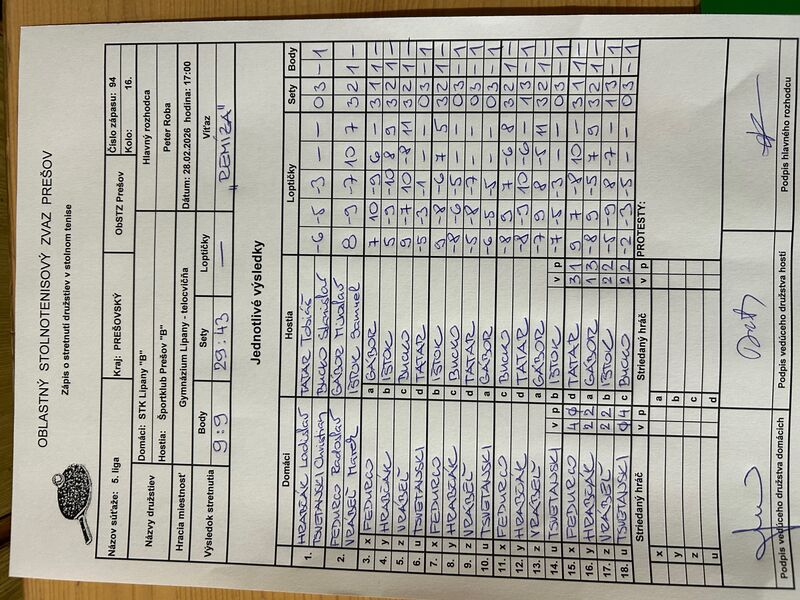 OBLASTNÝ STOLNOTENISOVÝ ZVAZ PREŠOV
Zápis o stretnutí družstiev v stolnom tenise
Názov súťaže: 5. liga Kraj: PREŠOVSKÝ ObSTZ Prešov Číslo zápasu: 94
Kolo: 16.
Názvy družstiev Domáci: STK Lipany "B" Hlavný rozhodca
Hostia: Športklub Prešov "B" Peter Roba
Hracia miestnosť Gymnázium Lipany - telocvičňa Dátum: 28.02.2026 hodina: 17:00
Výsledok stretnutia Body Sety Loptičky Víťaz
9:9 29:43 — "REMÍZA"
Jednotlivé výsledky
Domáci Hostia Loptičky Sety Body
1. HRABČÁK Ladislav TATAR Tobiáš -6 -5 -3 - - 0 3 - 1
TSVETANSKI Christian BUCKO Stanislav
2. FEDURCO Radoslav GÁBOR Miroslav 8 -9 -7 10 7 3 2 1 -
VRÁBEĽ Marek IŠTOK Samuel
3. x FEDURCO a GÁBOR 7 10 -9 6 - 3 1 1 -
4. y HRABČÁK b IŠTOK 5 -9 -10 8 9 3 2 1 -
5. z VRÁBEĽ c BUCKO 9 -7 10 -8 11 3 2 1 -
6. u TSVETANSKI d TATAR -5 -3 -1 - - 0 3 - 1
7. x FEDURCO b IŠTOK 9 -8 -6 7 5 3 2 1 -
8. y HRABČÁK c BUCKO -8 -6 -5 - - 0 3 - 1
9. z VRÁBEĽ d TATAR -5 -8 -7 - - 0 3 - 1
10. u TSVETANSKI a GÁBOR -6 -5 -5 - - 0 3 - 1
11. x FEDURCO c BUCKO -8 9 7 -6 8 3 2 1 -
12. y HRABČÁK d TATAR -8 -9 10 -6 - 1 3 - 1
13. z VRÁBEĽ a GÁBOR -7 9 8 -5 11 3 2 1 -
14. u TSVETANSKI v p b IŠTOK v p -7 -5 -3 - - 0 3 - 1
15. x FEDURCO 4 0 d TATAR 3 1 9 7 -8 10 - 3 1 1 -
16. y HRABČÁK 2 2 a GÁBOR 1 3 -8 9 -5 7 9 3 2 1 -
17. z VRÁBEĽ 2 2 b IŠTOK 2 2 -5 -9 8 -7 - 1 3 - 1
18. u TSVETANSKI 0 4 c BUCKO 2 2 -2 -3 -5 - - 0 3 - 1
Striedaný hráč v p Striedaný hráč v p PROTESTY:
x a
y b
z c
u d
Podpis vedúceho družstva domácich Podpis vedúceho družstva hostí Podpis hlavného rozhodcu